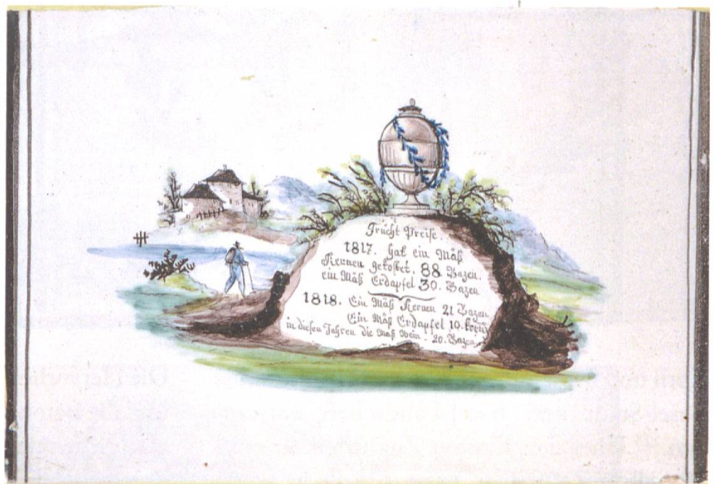 Frücht Preise.
1817. hat ein Mäß
Kernen gekostet. 88 Bazen.
ein Mäß Erdapfel 30. Bazen
1818. Ein Mäß Kernen 21 Bazen
Ein Mäß Erdapfel 10. Kreuz
in diesen Jahren die Maß Wein. 20. Bazen